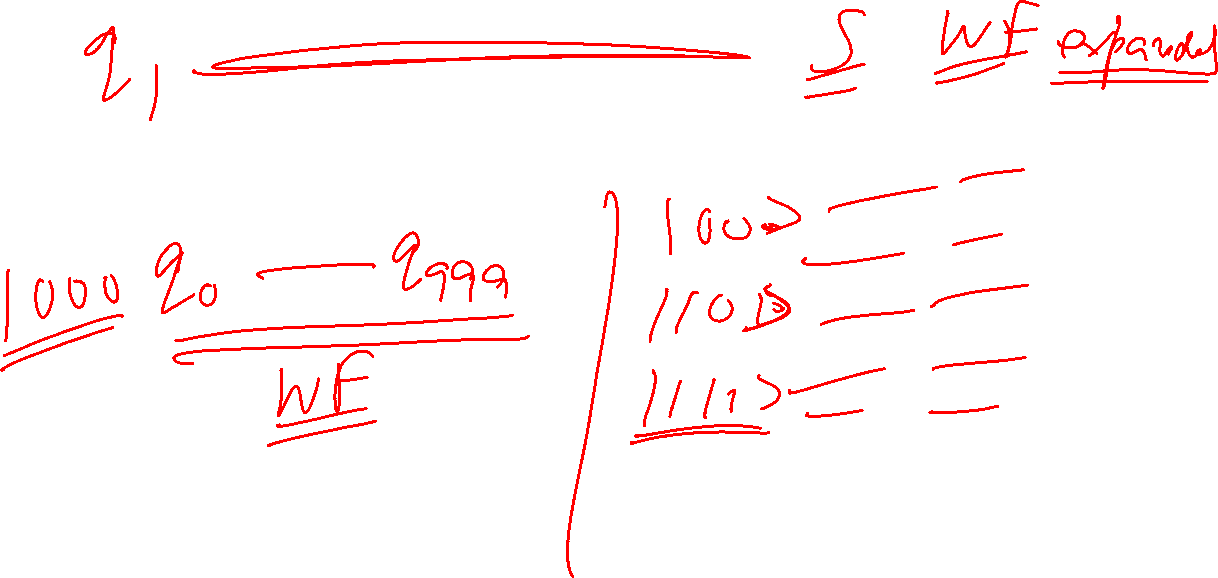 q1 S WF expanded
1000 q0 — q999
WF
100>
110>
111>